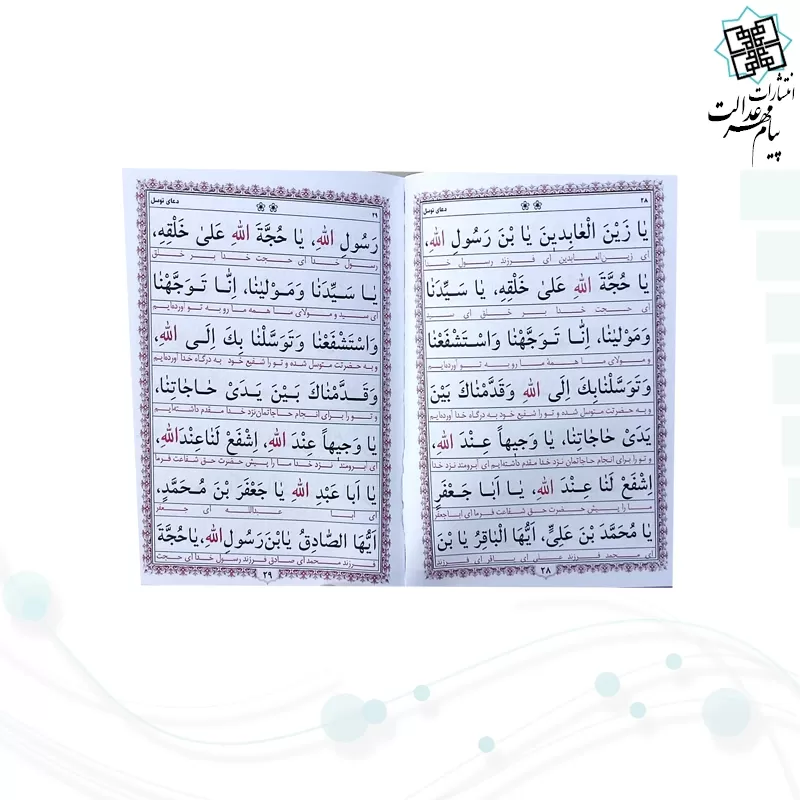 انتشارات
پیام مهر عدالت
۲۸
دعای توسل
یا زَیْنَ الْعٰابِدینَ یَا بْنَ رَسُولِ اللهِ،
ای زین‌العابدین ای فرزند رسول خدا
یٰا حُجَّةَ اللهِ عَلیٰ خَلْقِهِ، یٰا سَیِّدَنٰا
ای حجت خدا بر خلق ای سید
وَمَوْلیٰنٰا، اِنّٰا تَوَجَّهْنٰا وَاسْتَشْفَعْنٰا
و مولای ما همۀ ما رو به تو آورده‌ایم
وَتَوَسَّلْنٰابِكَ اِلَی اللهِ وَقَدَّمْنٰاكَ بَیْنَ
و به حضرتت متوسل شده و تو را شفیع خود به درگاه خدا آورده‌ایم
یَدَیْ حٰاجٰاتِنٰا، یٰا وَجیهاً عِنْدَ اللهِ،
و تو را برای انجام حاجاتمان نزد خدا مقدم داشته‌ایم ای آبرومند نزد خدا
اِشْفَعْ لَنٰا عِنْدَ اللهِ، یٰا اَبٰا جَعْفَرٍ
ما را پیش حضرت حق شفاعت فرما ای اباجعفر
یٰا مُحَمَّدَ بْنَ عَلِیٍّ، اَیُّهَا الْبٰاقِرُ یَا بْنَ
ای محمد فرزند علی ای باقر ای فرزند
۲۸
۲۹
دعای توسل
رَسُولِ اللهِ، یٰا حُجَّةَ اللهِ عَلیٰ خَلْقِهِ،
رسول خدا ای حجت خدا بر خلق
یٰا سَیِّدَنٰا وَمَوْلیٰنٰا، اِنّٰا تَوَجَّهْنٰا
ای سید و مولای ما همه ما رو به تو آورده‌ایم
وَاسْتَشْفَعْنٰا وَتَوَسَّلْنٰا بِكَ اِلَی اللهِ،
و به حضرتت متوسل شده و تو را شفیع خود به درگاه خدا آورده‌ایم
وَقَدَّمْنٰاكَ بَیْنَ یَدَیْ حٰاجٰاتِنٰا،
و تو را برای انجام حاجاتمان نزد خدا مقدم داشته‌ایم
یٰا وَجیهاً عِنْدَ اللهِ، اِشْفَعْ لَنٰاعِنْدَاللهِ،
ای آبرومند نزد خدا ما را پیش حضرت حق شفاعت فرما
یٰا اَبٰا عَبْدِ اللهِ یٰا جَعْفَرَ بْنَ مُحَمَّدٍ،
ای ابا عبدالله ای جعفر
اَیُّهَا الصّٰادِقُ یَابْنَ‌رَسُولِ‌اللهِ، یٰاحُجَّةَ
فرزند محمد ای صادق فرزند رسول خدا ای حجت
۲۹